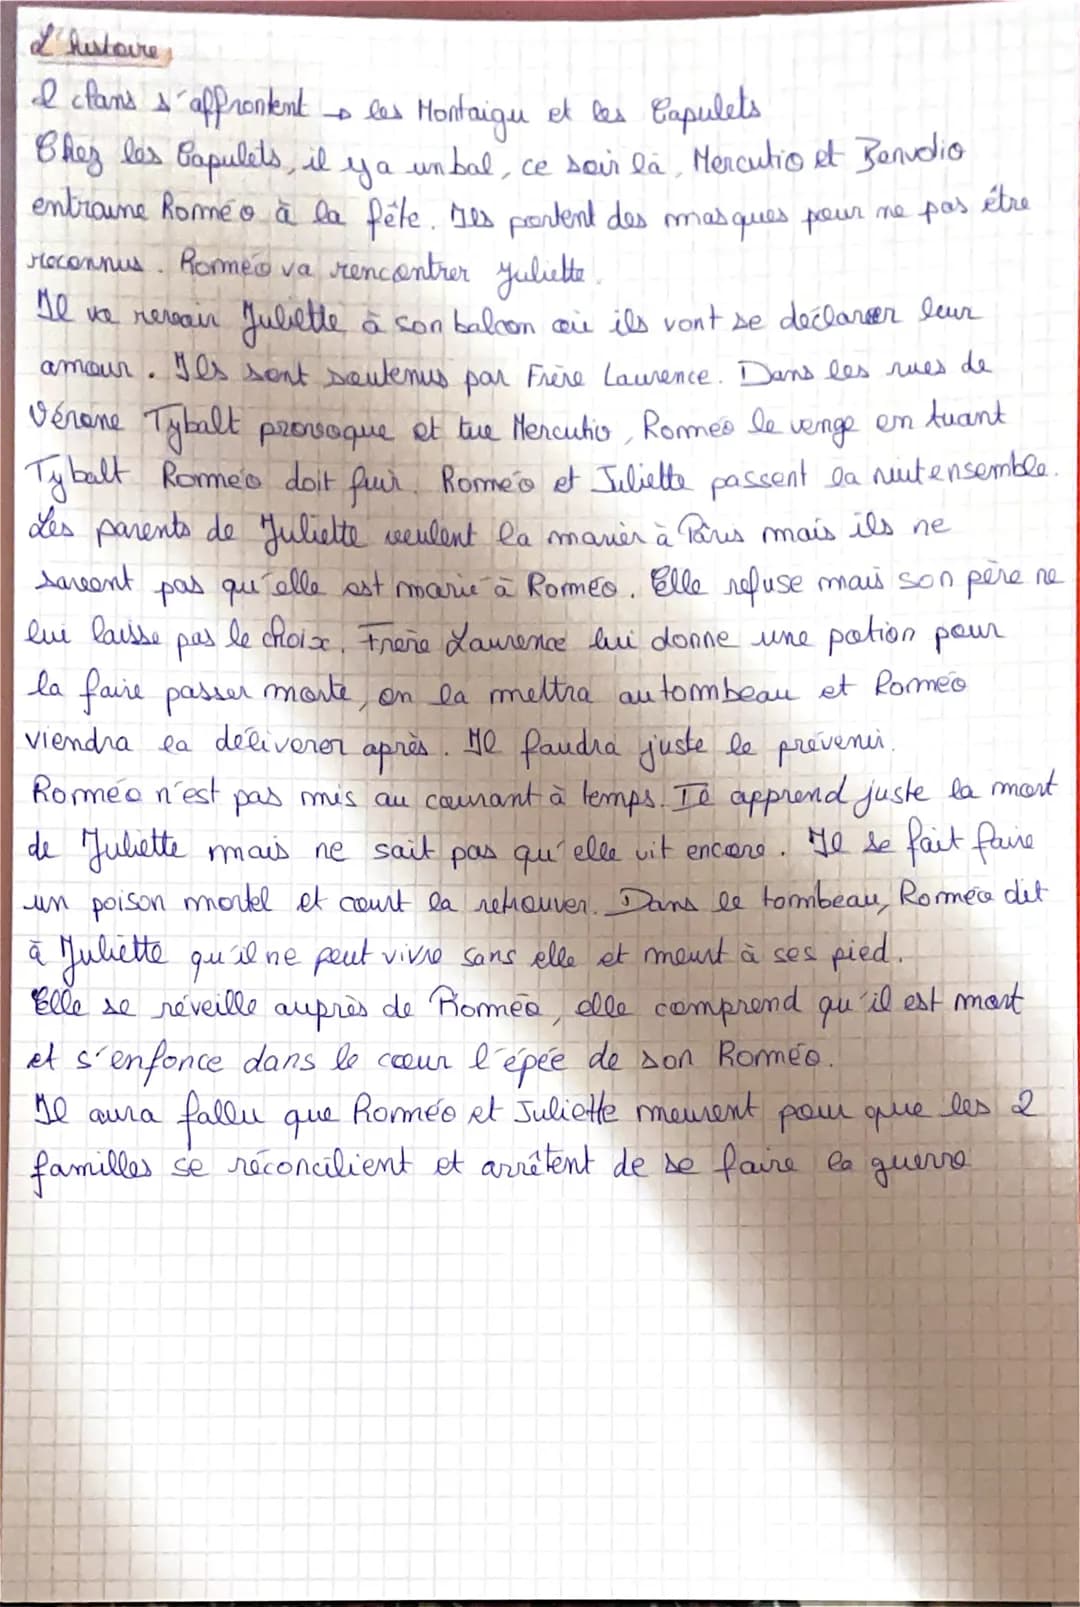 L'histoire
2 clans s'affrontent → les Montaigu et les Capulets
Chez les Capulets, il y a un bal, ce soir là, Mercutio et Benvolio
entraine Roméo à la fête. Ils portent des masques pour ne pas être
reconnus. Roméo va rencontrer Juliette.
Il va revoir Juliette à son balcon où ils vont se déclarer leur
amour. Ils sont soutenus par Frère Laurence. Dans les rues de
Vérone Tybalt provoque et tue Mercutio, Roméo le venge en tuant
Tybalt Roméo doit fuir. Roméo et Juliette passent la nuit ensemble.
Les parents de Juliette veulent la marier à Pâris mais ils ne
savent pas qu'elle est marié à Roméo. Elle refuse mais son père ne
lui laisse pas le choix. Frère Laurence lui donne une potion pour
la faire passer morte, on la mettra au tombeau et Roméo
viendra la déliverer après. Il faudra juste le prévenir.
Roméo n'est pas mis au courant à temps. Il apprend juste la mort
de Juliette mais ne sait pas qu'elle vit encore. Il se fait faire
un poison mortel et court la retrouver. Dans le tombeau, Roméo dit
à Juliette qu'il ne peut vivre sans elle et meurt à ses pied.
Elle se réveille auprès de Roméo, elle comprend qu'il est mort
et s'enfonce dans le cœur l'épée de son Roméo.
Il aura fallu que Roméo et Juliette meurent pour que les 2
familles se réconcilient et arrêtent de se faire la guerre